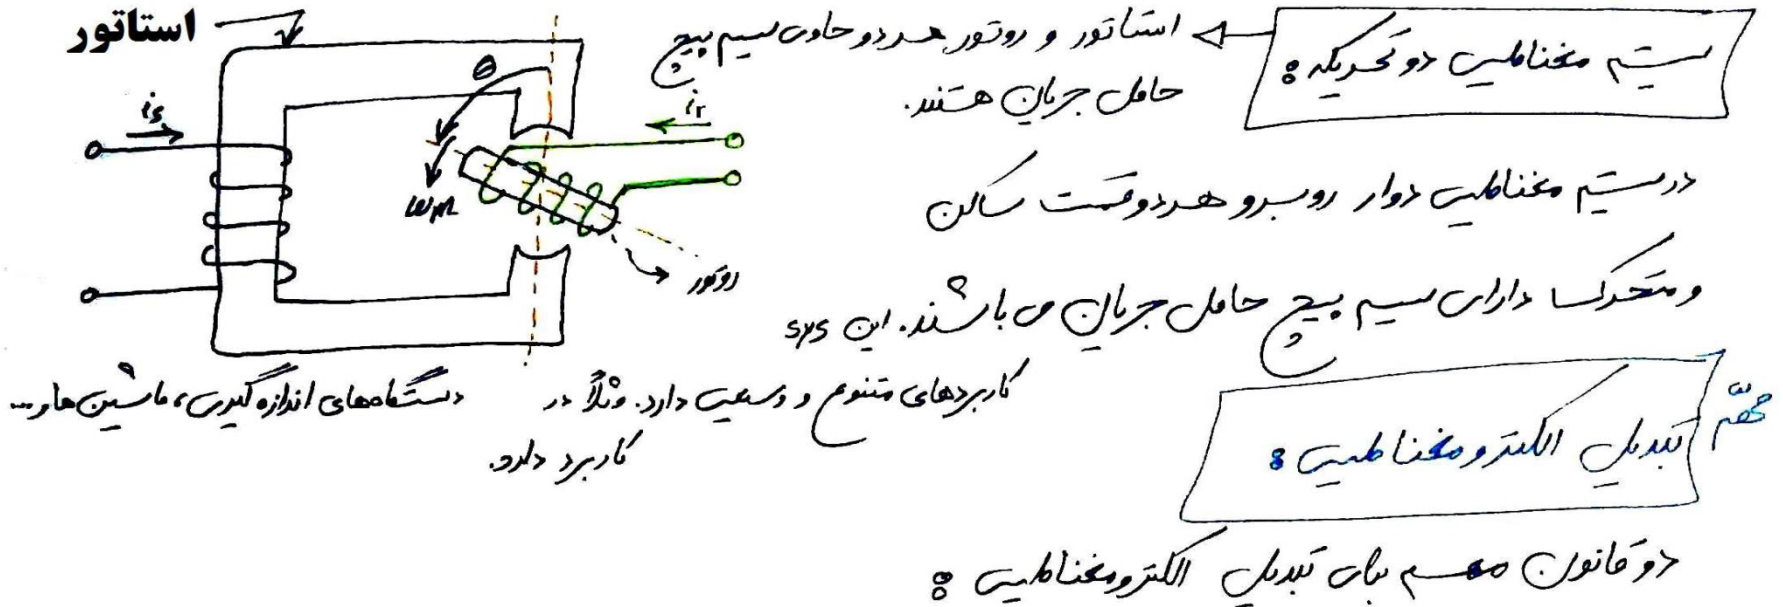 سیستم مغناطیسی دو تحریکه :
استاتور و روتور هر دو حاوی سیم پیچ
حامل جریان هستند.
استاتور
θ
is
ir
ωm
روتور
در سیستم مغناطیسی دوار روبرو هر دو قسمت ساکن
و متحرک دارای سیم پیچ حامل جریان می باشند. این sys
کاربردهای متنوع و وسیعی دارد. مثلاً در دستگاههای اندازه گیری، ماشین ها و...
کاربرد دارد.
مهم
تبدیل الکترومغناطیسی :
دو قانون مهم برای تبدیل الکترومغناطیسی :